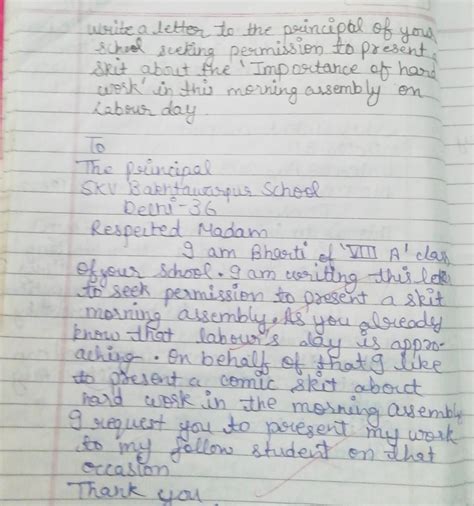 write a letter to the principal of your
school seeking permission to present
skit about the 'Importance of hard
work' in this morning assembly on
Labour day
To
The principal
SKV Bakhtawarpur School
Delhi-36
Respected Madam
I am Bharti of 'VIII A' clas
of your school. I am writing this
to seek permission to present a skit
morning assembly. As you already
know that labour's day is appro-
aching. On behalf of that I like
to present a comic skit about
hard work in the morning assembly
I request you to present my work
to my follow student on that
occasion
Thank you